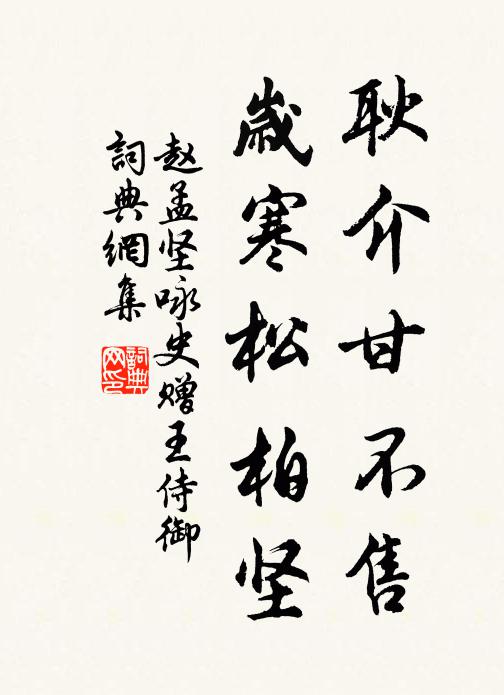 耿介甘不售
歲寒松柏坚
赵孟坚咏史赠王侍御
詞典網集
詞典
网印